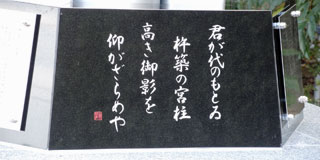 君が代のもとゐ
杵築の宮柱
高き御影を
仰がざらめや